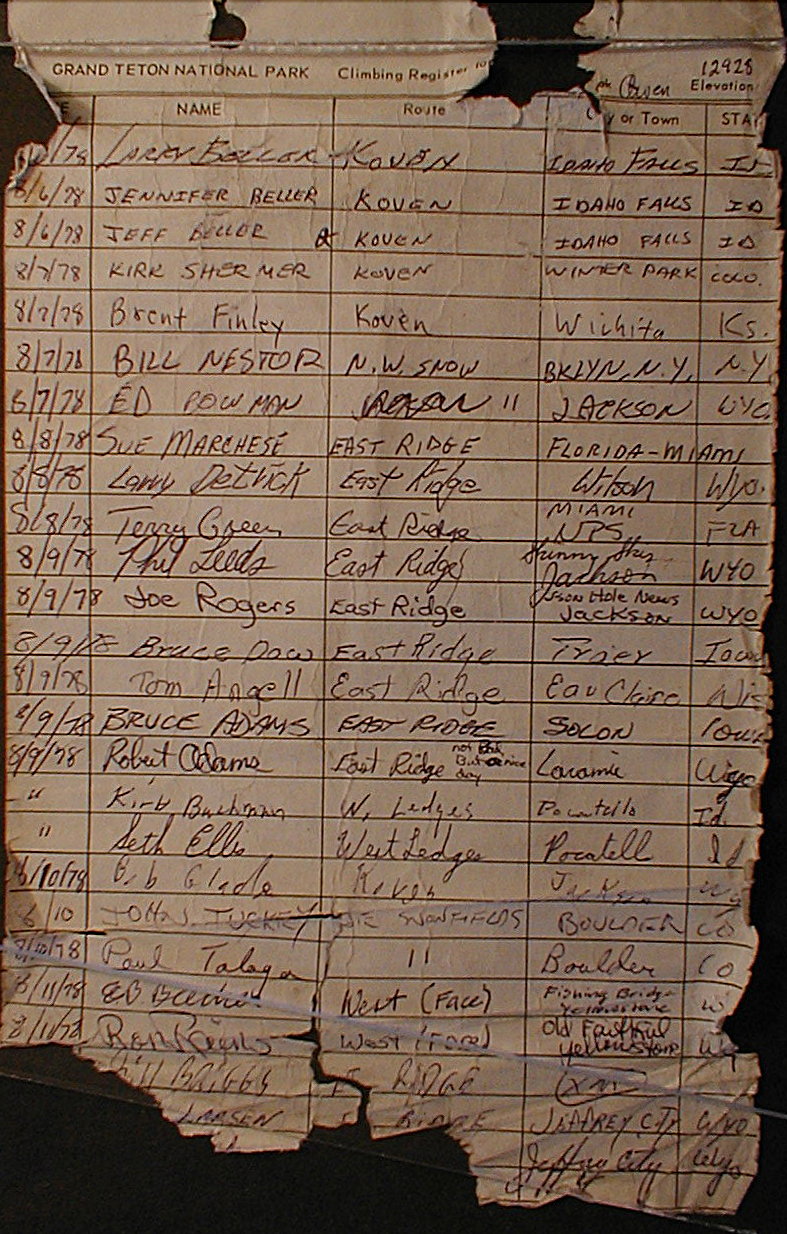 12928
GRAND TETON NATIONAL PARK Climbing Register Owen Elevation
NAME Route or Town STA
/78 LARRY BELLER KOVEN IDAHO FALLS ID
8/6/78 JENNIFER BELLER KOVEN IDAHO FALLS ID
8/6/78 JEFF BELLER KOVEN IDAHO FALLS ID
8/7/78 KIRK SHERMER KOVEN WINTER PARK COLO.
8/7/78 Brent Finley Koven Wichita Ks.
8/7/78 BILL NESTOR N.W. SNOW BKLYN, N.Y. N.Y.
8/7/78 ED BOWMAN " JACKSON WYO.
8/8/78 SUE MARCHESE EAST RIDGE FLORIDA-MIAMI
8/8/78 Larry Detrick East Ridge Wilson Wyo.
8/8/78 Terry Green East Ridge MIAMI NPS FLA
8/9/78 Phil Leeds East Ridge Jackson WYO
8/9/78 Joe Rogers East Ridge son Hole News Jackson WYO
8/9/78 Bruce Dow East Ridge Traer Iowa
8/9/78 Tom Angell East Ridge Eau Claire Wis
8/9/78 BRUCE ADAMS EAST RIDGE SOLON Iowa
8/9/78 Robert Adams East Ridge But a nice day Laramie Wyo
" Kirk Bachman W. Ledges Pocatello Id.
" Seth Ellis West Ledges Pocatell Id
8/10/78 Bob Koven Jackson Wy
8/10 JOHN TUCKEY BOULDER CO
8/10/78 Paul " Boulder CO
8/11/78 West (Face) Fishing Bridge Yellowstone W
8/11/78 West (Face) Old Faithful Yellowstone Wy
Bill BRIGGS RIDGE
LARSEN RIDGE JEFFREY CITY WYO
Jeffrey City Wyo